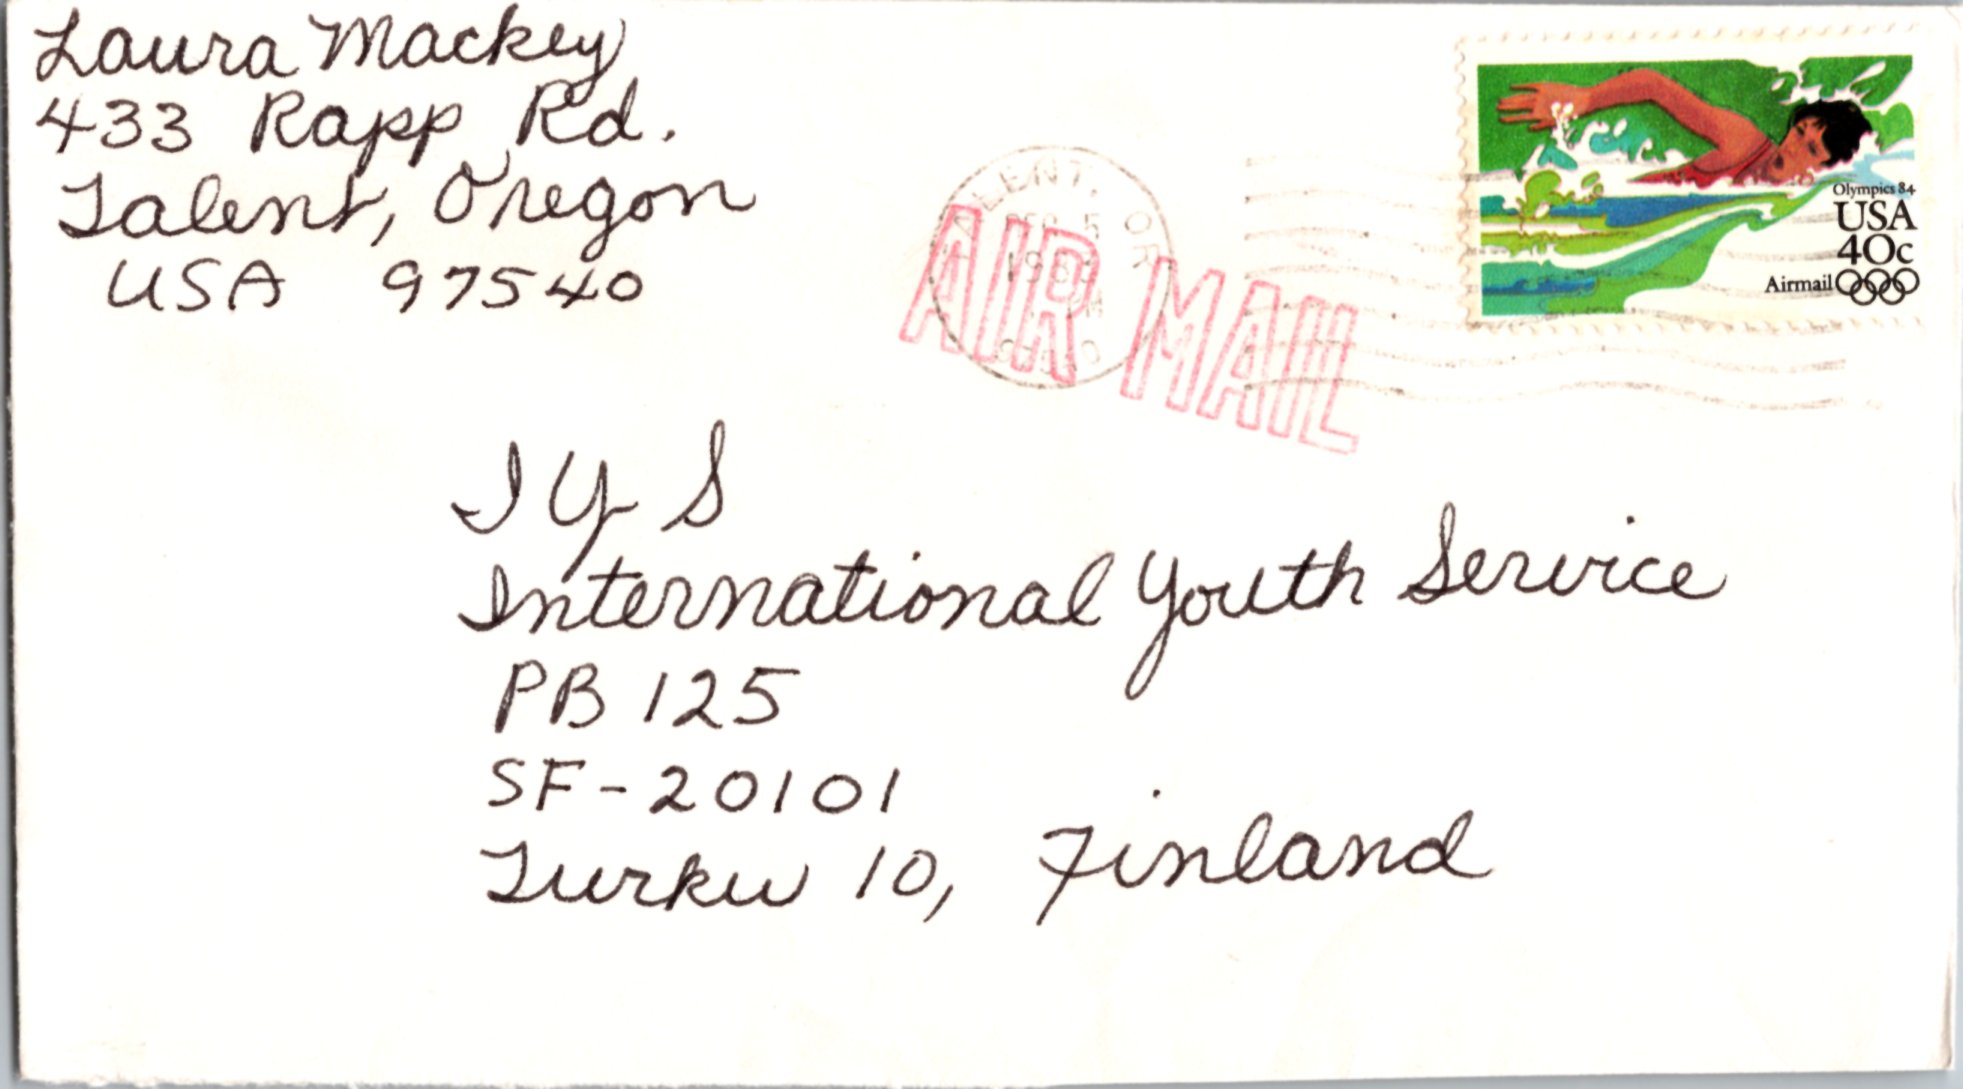 Laura Mackey
433 Rapp Rd.
Talent, Oregon
USA 97540
TALENT, OR
5
AIR MAIL
Olympics 84
USA
40c
Airmail
I Y S
International Youth Service
PB 125
SF-20101
Turku 10, Finland